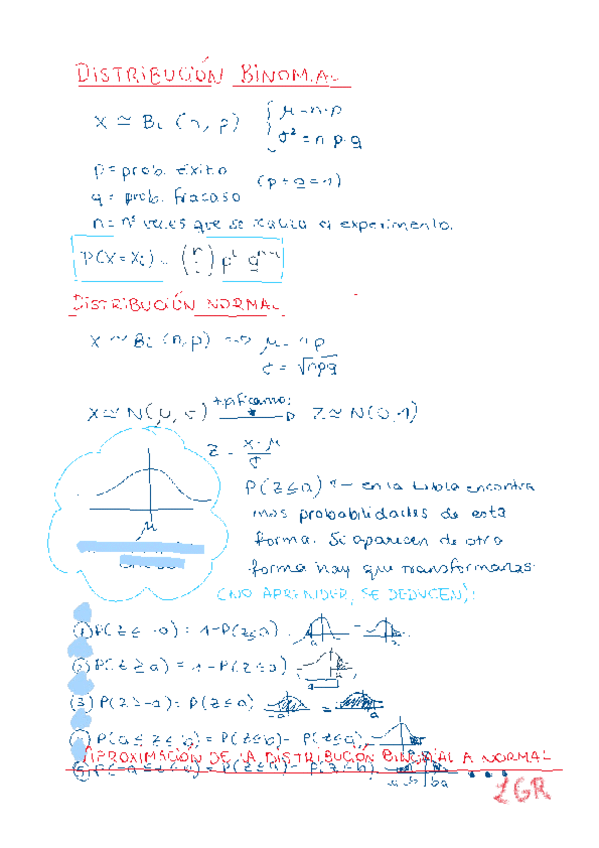 DISTRIBUCIÓN BINOMIAL
X ≃ Bi (n, p) { μ = n·p
σ² = n·p·q
p = prob. éxito
q = prob. fracaso (p + q = 1)
n = nº veces que se realiza el experimento.
P(X = Xi) = (n i) p^i q^n-i
DISTRIBUCIÓN NORMAL
X ~ Bi (n, p) → μ = np
σ = √npq
X ≃ N(μ, σ) tipificamos: → Z ≃ N(0,1)
Z = x-μ/σ
μ
P(Z ≤ a) ← en la tabla encontra
mos probabilidades de esta
forma. Si aparecen de otra
forma hay que transformarlas
(NO APRENDER, SE DEDUCEN):
① P(Z ≤ -a) = 1 - P(Z ≤ a)
② P(Z ≥ a) = 1 - P(Z ≤ a)
③ P(Z ≥ -a) = P(Z ≤ a) -a = a
④ P(a ≤ Z ≤ b) = P(Z ≤ b) - P(Z ≤ a)
APROXIMACIÓN DE LA DISTRIBUCIÓN BINOMIAL A NORMAL